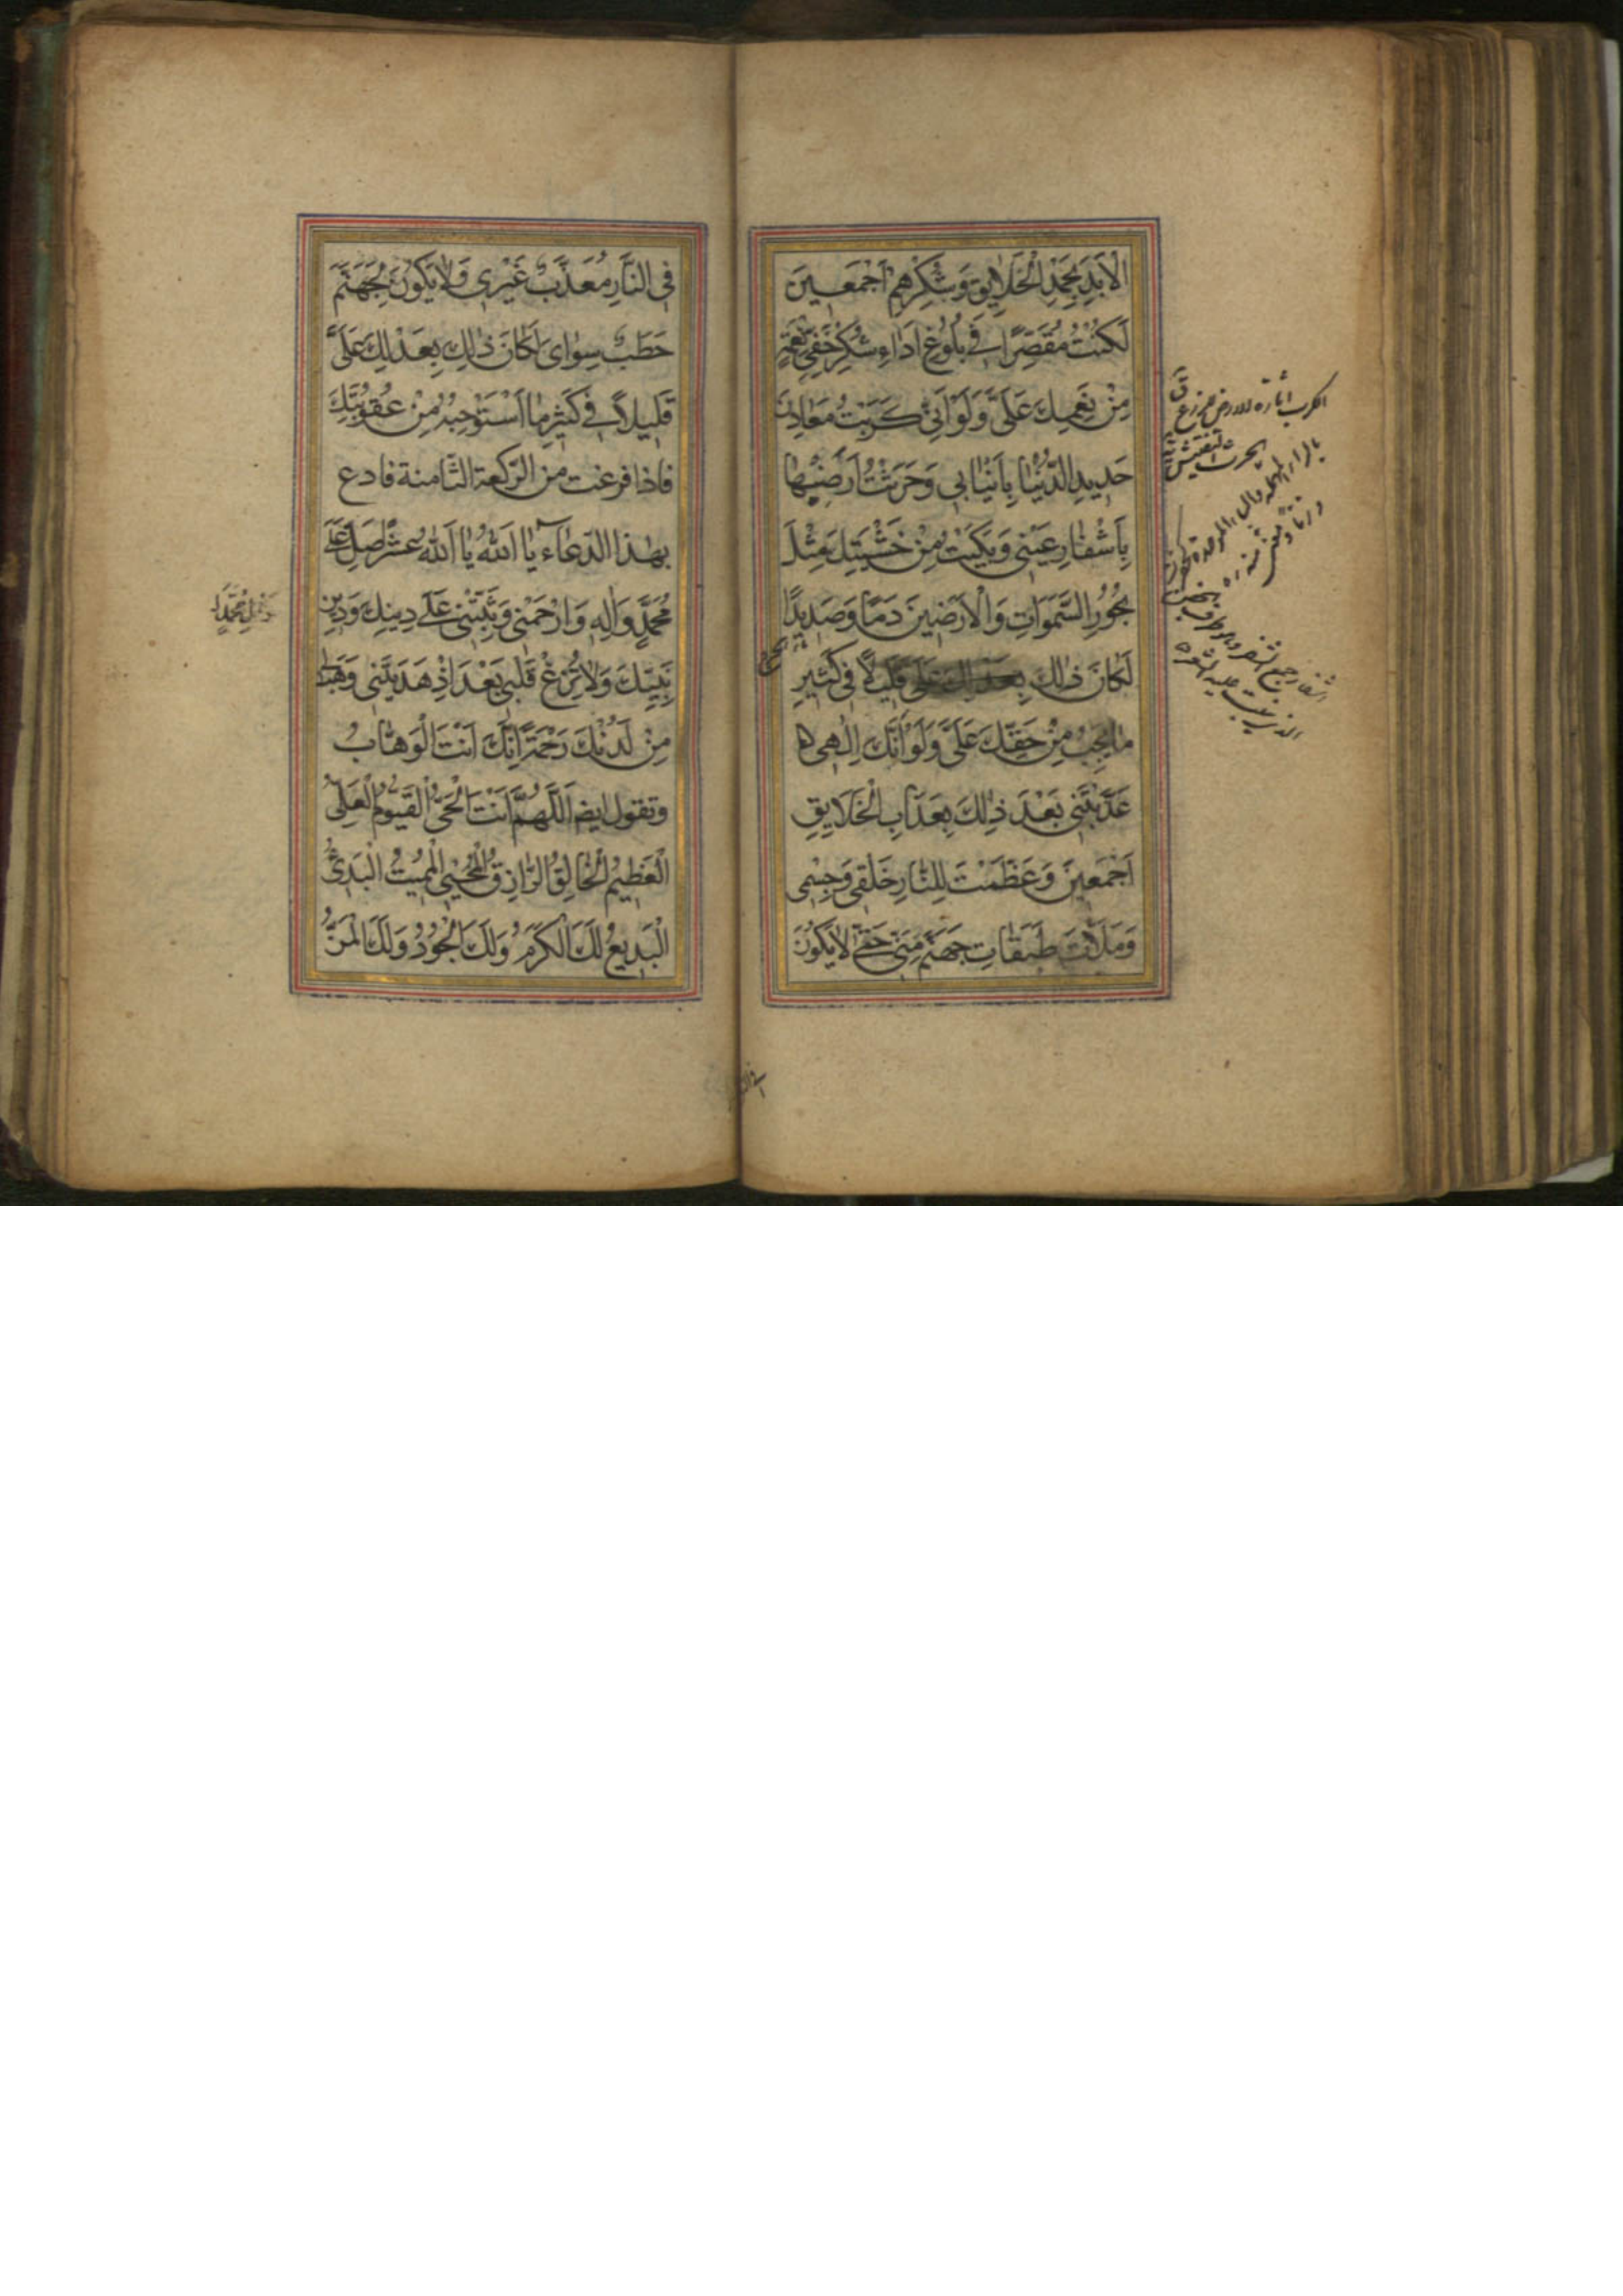 الْاَبَدِ بِحَمْدِ الْخَلَايِقِ وَشُكْرِهِمْ اَجْمَعِينَ
لَكُنْتُ مُقَصِّرًا فِي بُلُوغِ اَدَاءِ شُكْرِ خَفِيِّ نِعْمَةٍ
مِنْ نِعَمِكَ عَلَيَّ وَلَوْ اَنِّي كَرَبْتُ مَعَادِنَ
حَدِيدِ الدُّنْيَا بِاَنْيَابِي وَحَرَثْتُ اَرَضِيهَا
بِاَشْفَارِ عَيْنِي وَبَكَيْتُ مِنْ خَشْيَتِكَ مِثْلَ
بُحُورِ السَّمٰوَاتِ وَالْاَرَضِينَ دَمًا وَصَدِيدًا
لَكَانَ ذٰلِكَ قَلِيلًا فِي كَثِيرِ
مَا يَجِبُ مِنْ حَقِّكَ عَلَيَّ وَلَوْ اَنَّكَ اِلٰهِي
عَذَّبْتَنِي بَعْدَ ذٰلِكَ بِعَذَابِ الْخَلَايِقِ
اَجْمَعِينَ وَعَظَّمْتَ لِلنَّارِ خَلْقِي وَجِسْمِي
وَمَلَأْتَ طَبَقَاتِ جَهَنَّمَ مِنِّي حَتّٰى لَا يَكُونَ
الكرب اثارة الارض للزرع ق
بالراء المهملة والباء الموحدة
الحرث التفتيش
فِي النَّارِ مُعَذَّبٌ غَيْرِي وَلَا يَكُونَ لِجَهَنَّمَ
حَطَبٌ سِوَايَ لَكَانَ ذٰلِكَ بِعَدْلِكَ عَلَيَّ
قَلِيلًا فِي كَثِيرِ مَا اَسْتَوْجِبُهُ مِنْ عُقُوبَتِكَ
فاذا فرغت من الركعة الثامنة فادع
بهذا الدعاء يَا اَللّٰهُ يَا اَللّٰهُ عشرًا صَلِّ عَلٰى
مُحَمَّدٍ وَاٰلِهِ وَارْحَمْنِي وَثَبِّتْنِي عَلٰى دِينِكَ وَدِينِ
نَبِيِّكَ وَلَا تُزِغْ قَلْبِي بَعْدَ اِذْ هَدَيْتَنِي وَهَبْ لِي
مِنْ لَدُنْكَ رَحْمَةً اِنَّكَ اَنْتَ الْوَهَّابُ
وتقول ايضا اَللّٰهُمَّ اَنْتَ الْحَيُّ الْقَيُّومُ الْعَلِيُّ
الْعَظِيمُ الْخَالِقُ الرَّازِقُ الْمُحْيِي الْمُمِيتُ الْبَدِيءُ
الْبَدِيعُ لَكَ الْكَرَمُ وَلَكَ الْجُودُ وَلَكَ الْمَنُّ